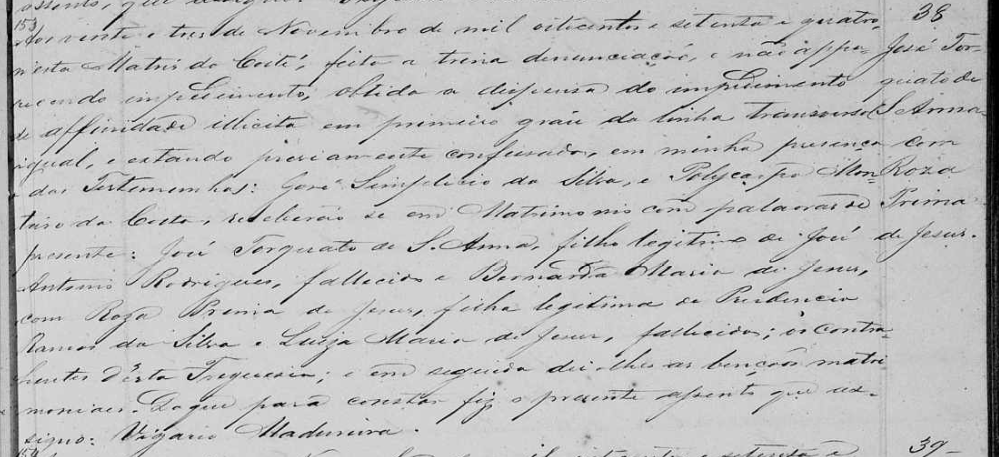 assento, que assigno.
153
38
Aos vinte e tres de Novembro de mil oitocentos e setenta e quatro,
n'esta Matriz do Codó, feita a trina denunciação, e não appa-
José Tor-
recendo impedimento, obtida a dispensa do impedimento
quato de
de affinidade illicita em primeiro gráu da linha transversal
S. Anna
igual, e estando previamente confessados, em minha presença e
com
das Testemunhas: José Simplicio da Silva, e Polycarpo Mon-
Roza
teiro da Costa, receberão se em Matrimonio com palavras de
Prima
presente: José Torquato de S. Anna, filho legitimo de José
de Jesus.
Antonio Rodrigues, fallecido e Bernarda Maria de Jesus,
com Roza Prima de Jesus, filha legitima de Prudencio
Ramos da Silva e Luiza Maria de Jesus, fallecida; os contra-
hentes d'esta Freguesia; e em seguida dei-lhes as bençãos matri-
moniaes. Do que para constar fiz o presente assento que as-
signo: Vigario Madureira.
154
39